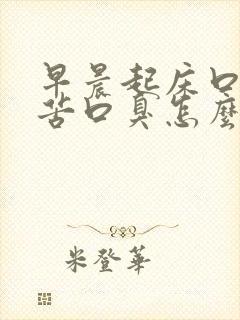 早晨起床口
苦口臭怎麼
米登華